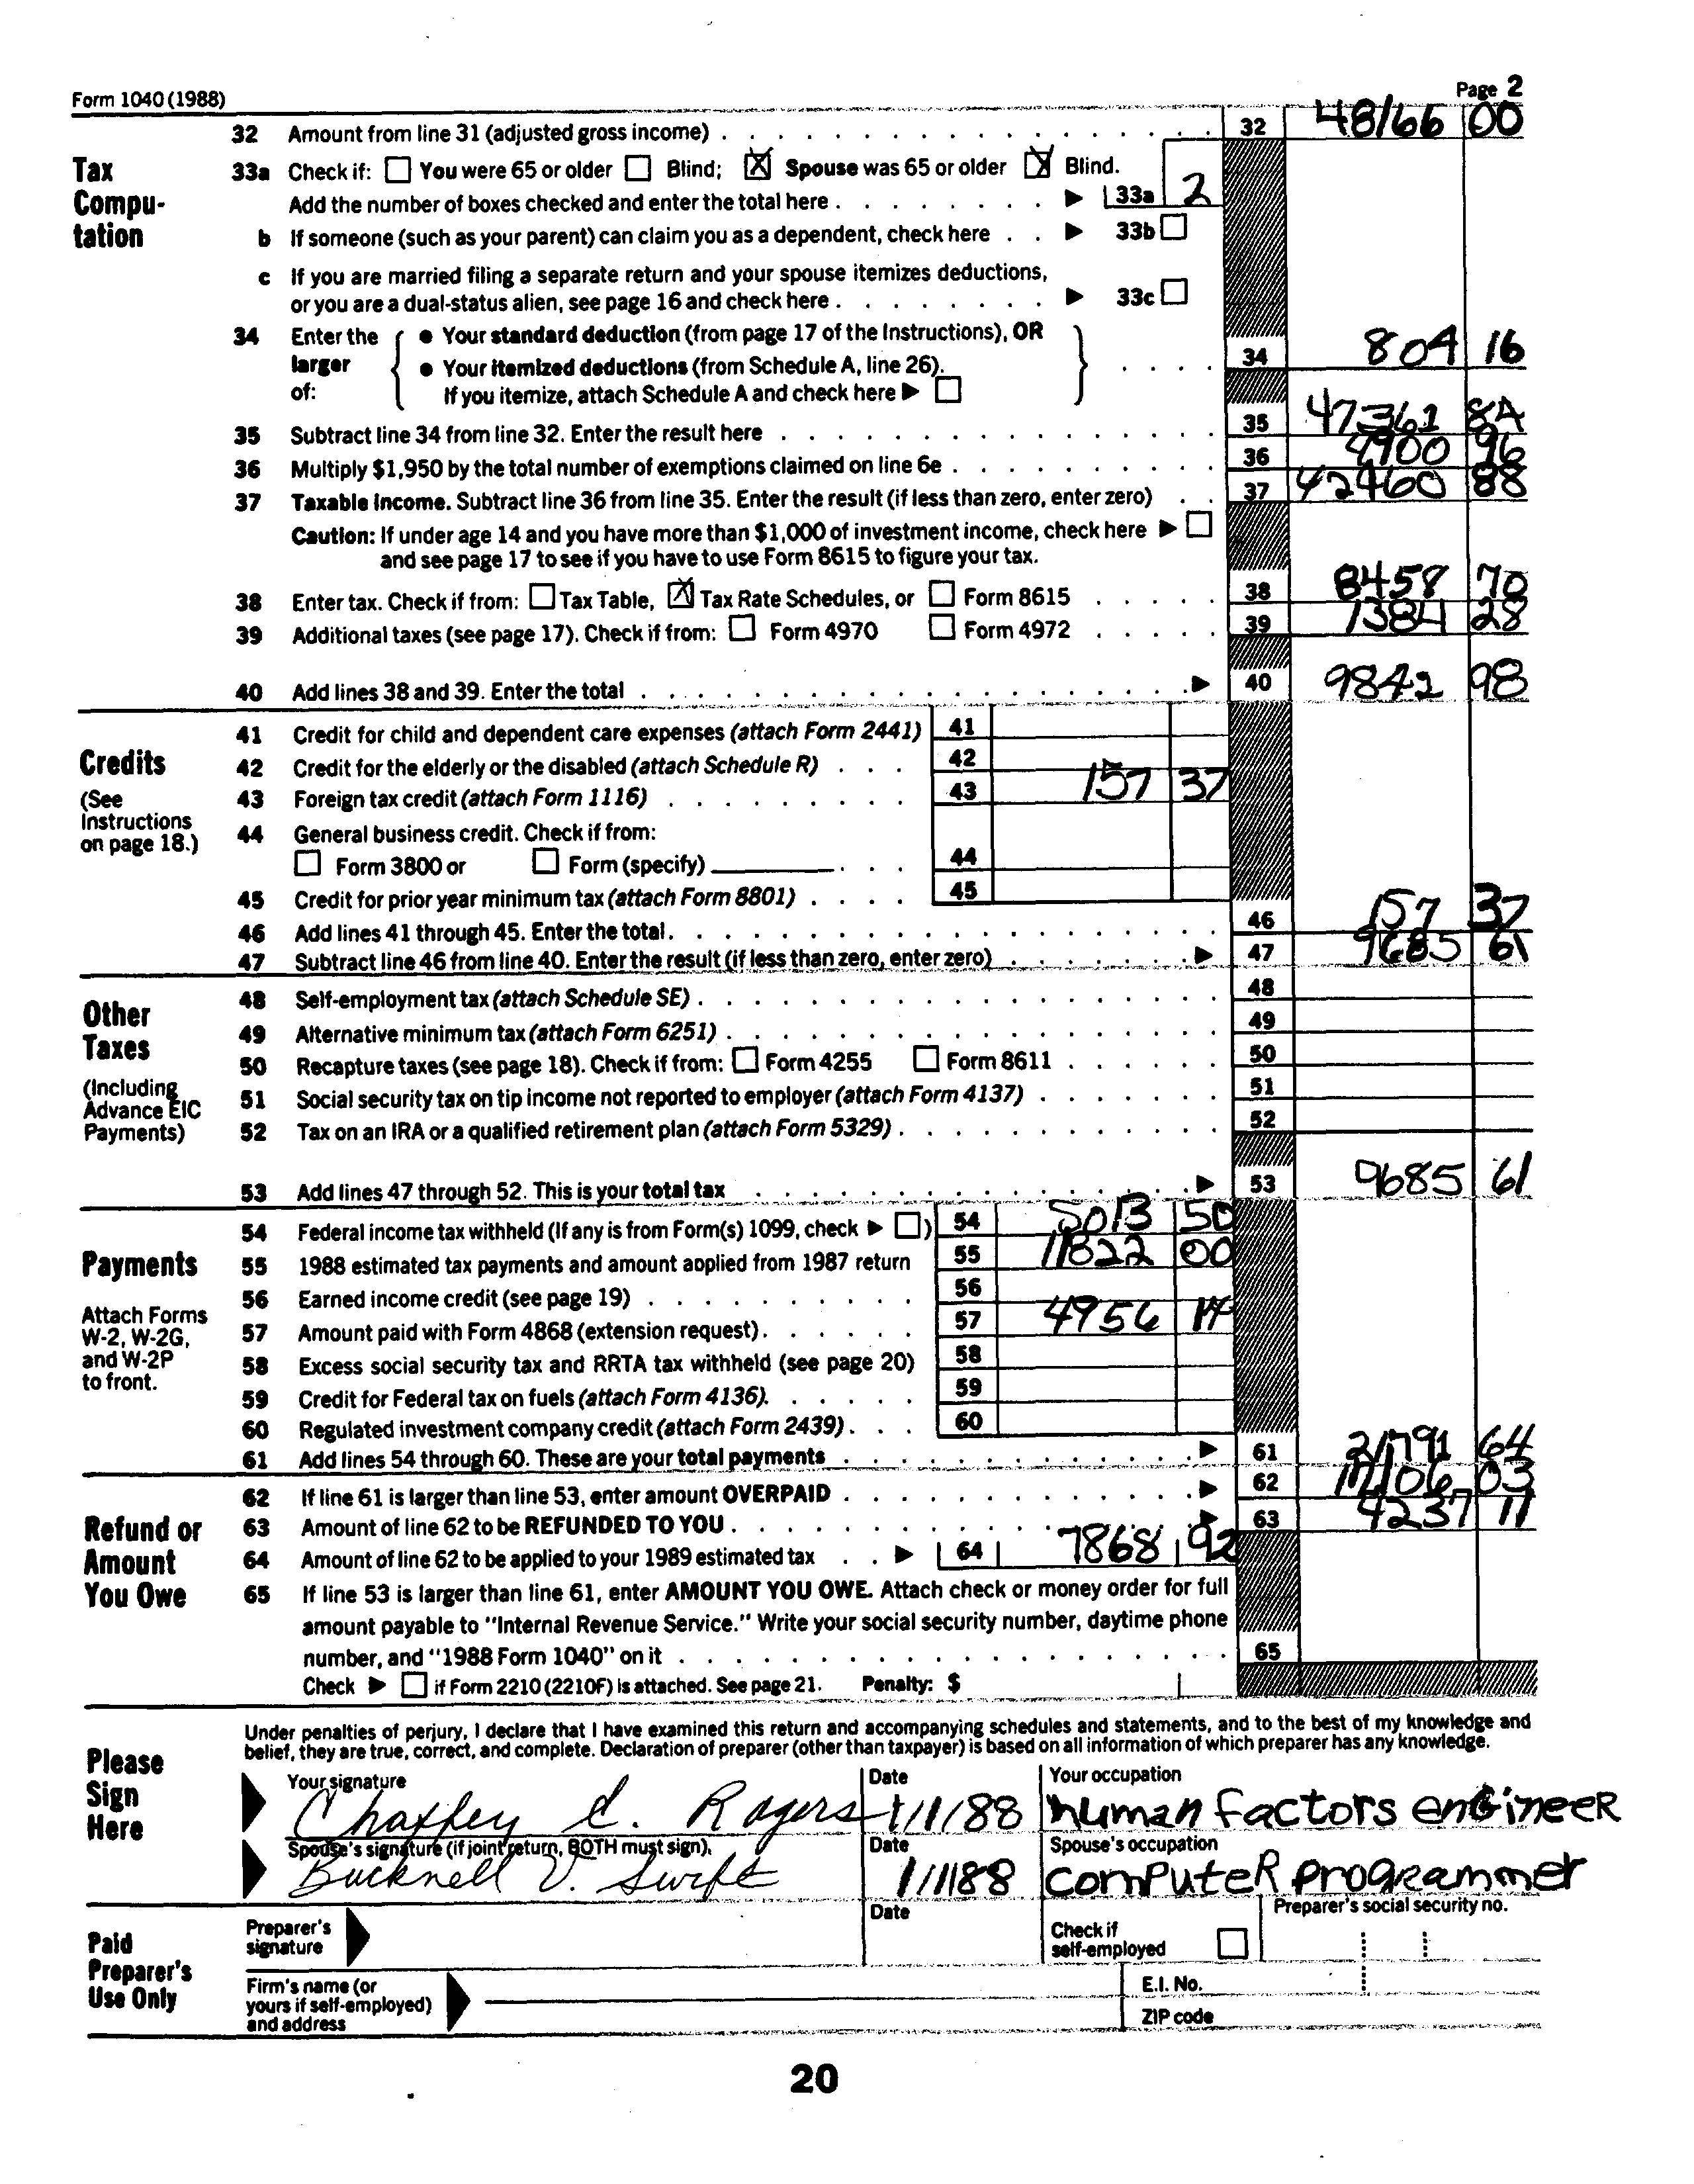 Form 1040 (1988)
Page 2
Tax Compu-tation
32 Amount from line 31 (adjusted gross income) 32 48166 00
33a Check if: You were 65 or older Blind; X Spouse was 65 or older X Blind.
Add the number of boxes checked and enter the total here 33a 2
b If someone (such as your parent) can claim you as a dependent, check here 33b
c If you are married filing a separate return and your spouse itemizes deductions,
or you are a dual-status alien, see page 16 and check here 33c
34 Enter the larger of:
● Your standard deduction (from page 17 of the Instructions), OR
● Your itemized deductions (from Schedule A, line 26).
If you itemize, attach Schedule A and check here ▶
34 804 16
35 Subtract line 34 from line 32. Enter the result here 35 47361 84
36 Multiply $1,950 by the total number of exemptions claimed on line 6e 36 4900 96
37 Taxable income. Subtract line 36 from line 35. Enter the result (if less than zero, enter zero) 37 42460 88
Caution: If under age 14 and you have more than $1,000 of investment income, check here ▶
and see page 17 to see if you have to use Form 8615 to figure your tax.
38 Enter tax. Check if from: Tax Table, X Tax Rate Schedules, or Form 8615 38 8458 70
39 Additional taxes (see page 17). Check if from: Form 4970 Form 4972 39 1384 28
40 Add lines 38 and 39. Enter the total ▶ 40 9842 98
Credits
(See Instructions on page 18.)
41 Credit for child and dependent care expenses (attach Form 2441) 41
42 Credit for the elderly or the disabled (attach Schedule R) 42
43 Foreign tax credit (attach Form 1116) 43 157 37
44 General business credit. Check if from:
Form 3800 or Form (specify) 44
45 Credit for prior year minimum tax (attach Form 8801) 45
46 Add lines 41 through 45. Enter the total 46 157 37
47 Subtract line 46 from line 40. Enter the result (if less than zero, enter zero) ▶ 47 9685 61
Other Taxes
(Including Advance EIC Payments)
48 Self-employment tax (attach Schedule SE) 48
49 Alternative minimum tax (attach Form 6251) 49
50 Recapture taxes (see page 18). Check if from: Form 4255 Form 8611 50
51 Social security tax on tip income not reported to employer (attach Form 4137) 51
52 Tax on an IRA or a qualified retirement plan (attach Form 5329) 52
53 Add lines 47 through 52. This is your total tax ▶ 53 9685 61
Payments
Attach Forms W-2, W-2G, and W-2P to front.
54 Federal income tax withheld (If any is from Form(s) 1099, check ▶ ) 54 5013 50
55 1988 estimated tax payments and amount applied from 1987 return 55 11822 00
56 Earned income credit (see page 19) 56
57 Amount paid with Form 4868 (extension request) 57 4956 14
58 Excess social security tax and RRTA tax withheld (see page 20) 58
59 Credit for Federal tax on fuels (attach Form 4136) 59
60 Regulated investment company credit (attach Form 2439) 60
61 Add lines 54 through 60. These are your total payments ▶ 61 21791 64
Refund or Amount You Owe
62 If line 61 is larger than line 53, enter amount OVERPAID ▶ 62 12106 03
63 Amount of line 62 to be REFUNDED TO YOU ▶ 63 4237 11
64 Amount of line 62 to be applied to your 1989 estimated tax ▶ 64 7868 92
65 If line 53 is larger than line 61, enter AMOUNT YOU OWE. Attach check or money order for full
amount payable to "Internal Revenue Service." Write your social security number, daytime phone
number, and "1988 Form 1040" on it 65
Check ▶ if Form 2210 (2210F) is attached. See page 21. Penalty: $
Please Sign Here
Under penalties of perjury, I declare that I have examined this return and accompanying schedules and statements, and to the best of my knowledge and
belief, they are true, correct, and complete. Declaration of preparer (other than taxpayer) is based on all information of which preparer has any knowledge.
Your signature Date Your occupation
Chaffey C. Rogers 1/1/88 human factors enGineeR
Spouse's signature (if joint return, BOTH must sign). Date Spouse's occupation
Bucknell V. Swift 1/1/88 computeR pRogRammer
Paid Preparer's Use Only
Preparer's signature Date Check if self-employed Preparer's social security no.
Firm's name (or yours if self-employed) and address E.I. No.
ZIP code
20